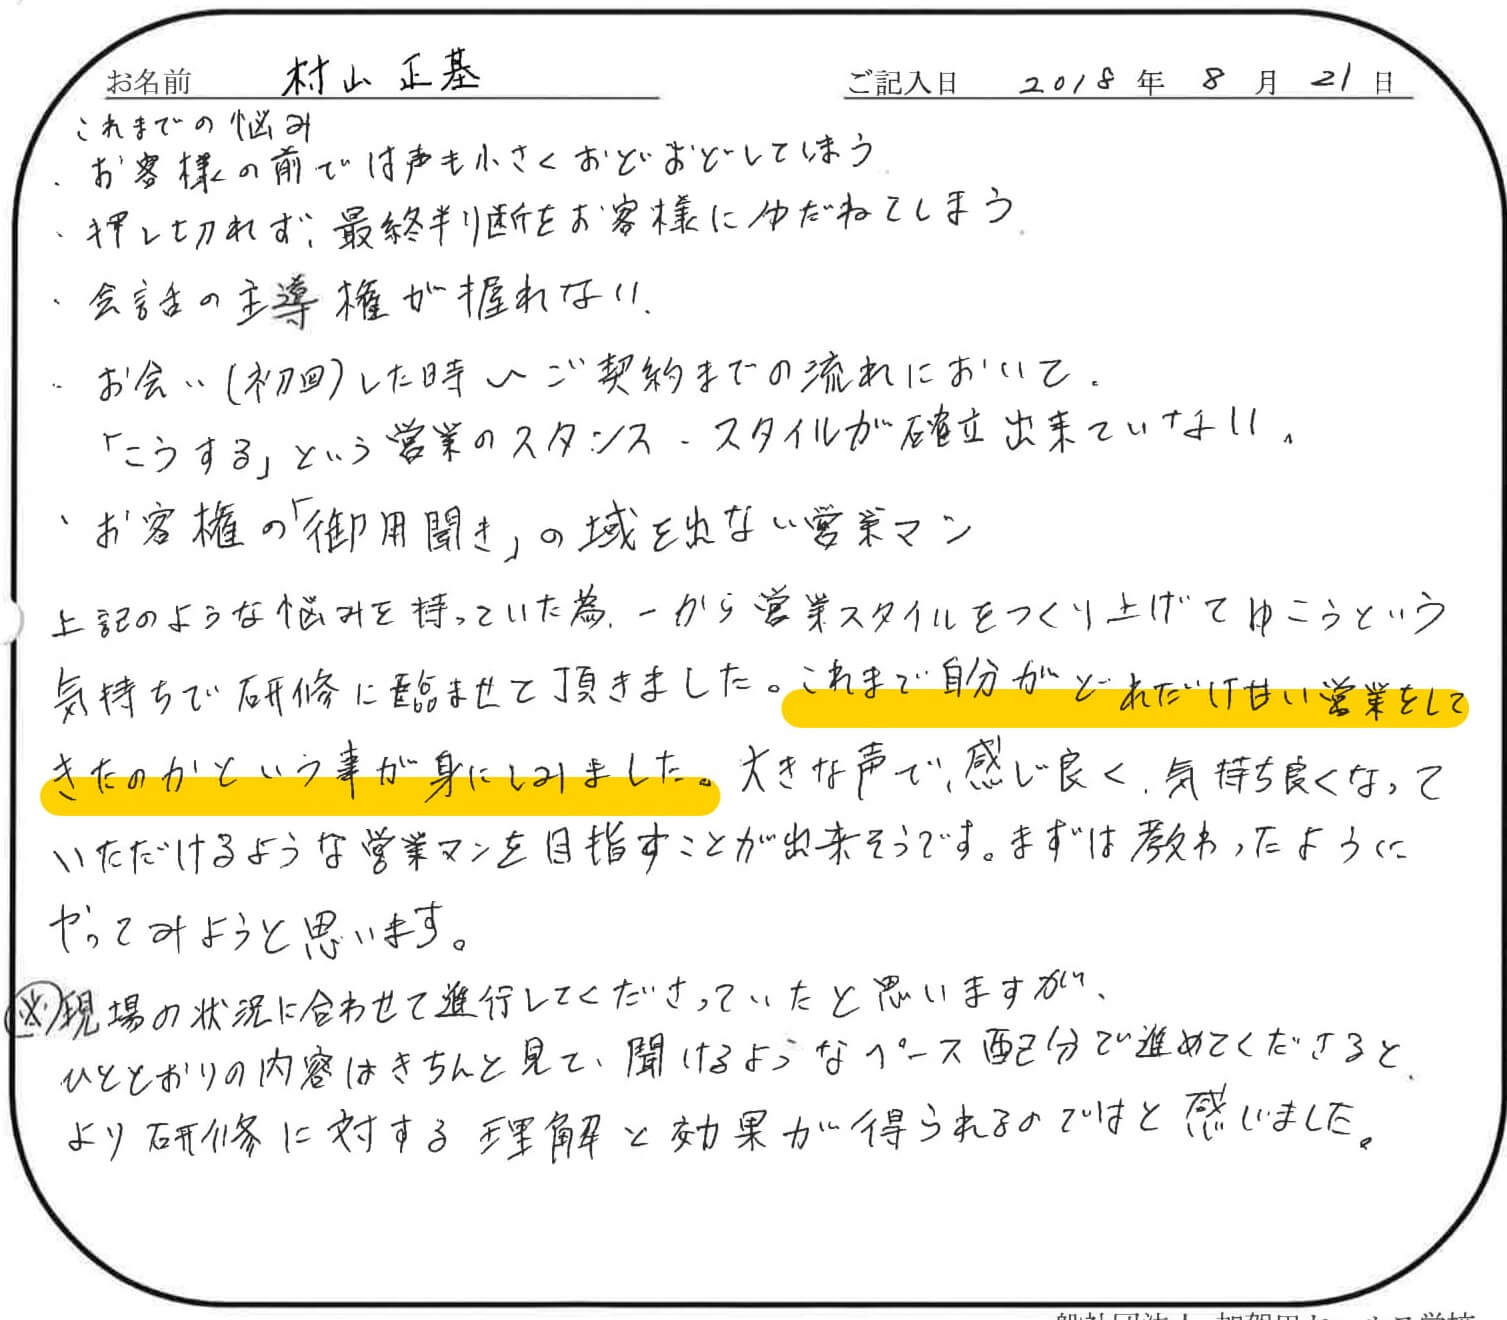 お名前 村山 正基 ご記入日 2018 年 8 月 21 日
これまでの悩み
・お客様の前では声も小さくおどおどしてしまう
・押し切れず、最終判断をお客様にゆだねてしまう
・会話の主導権が握れない
・お会い(初回)した時〜ご契約までの流れにおいて、
「こうする」という営業のスタンス・スタイルが確立出来ていない。
・お客様の「御用聞き」の域を出ない営業マン
上記のような悩みを持っていた為、一から営業スタイルをつくり上げてゆこうという
気持ちで研修に臨ませて頂きました。これまで自分がどれだけ甘い営業をして
きたのかという事が身にしみました。大きな声で、感じ良く、気持ち良くなって
いただけるような営業マンを目指すことが出来そうです。まずは教わったように
やってみようと思います。
※現場の状況に合わせて進行してくださっていたと思いますが、
ひととおりの内容はきちんと見て、聞けるようなペース配分で進めてくださると、
より研修に対する理解と効果が得られるのではと感じました。